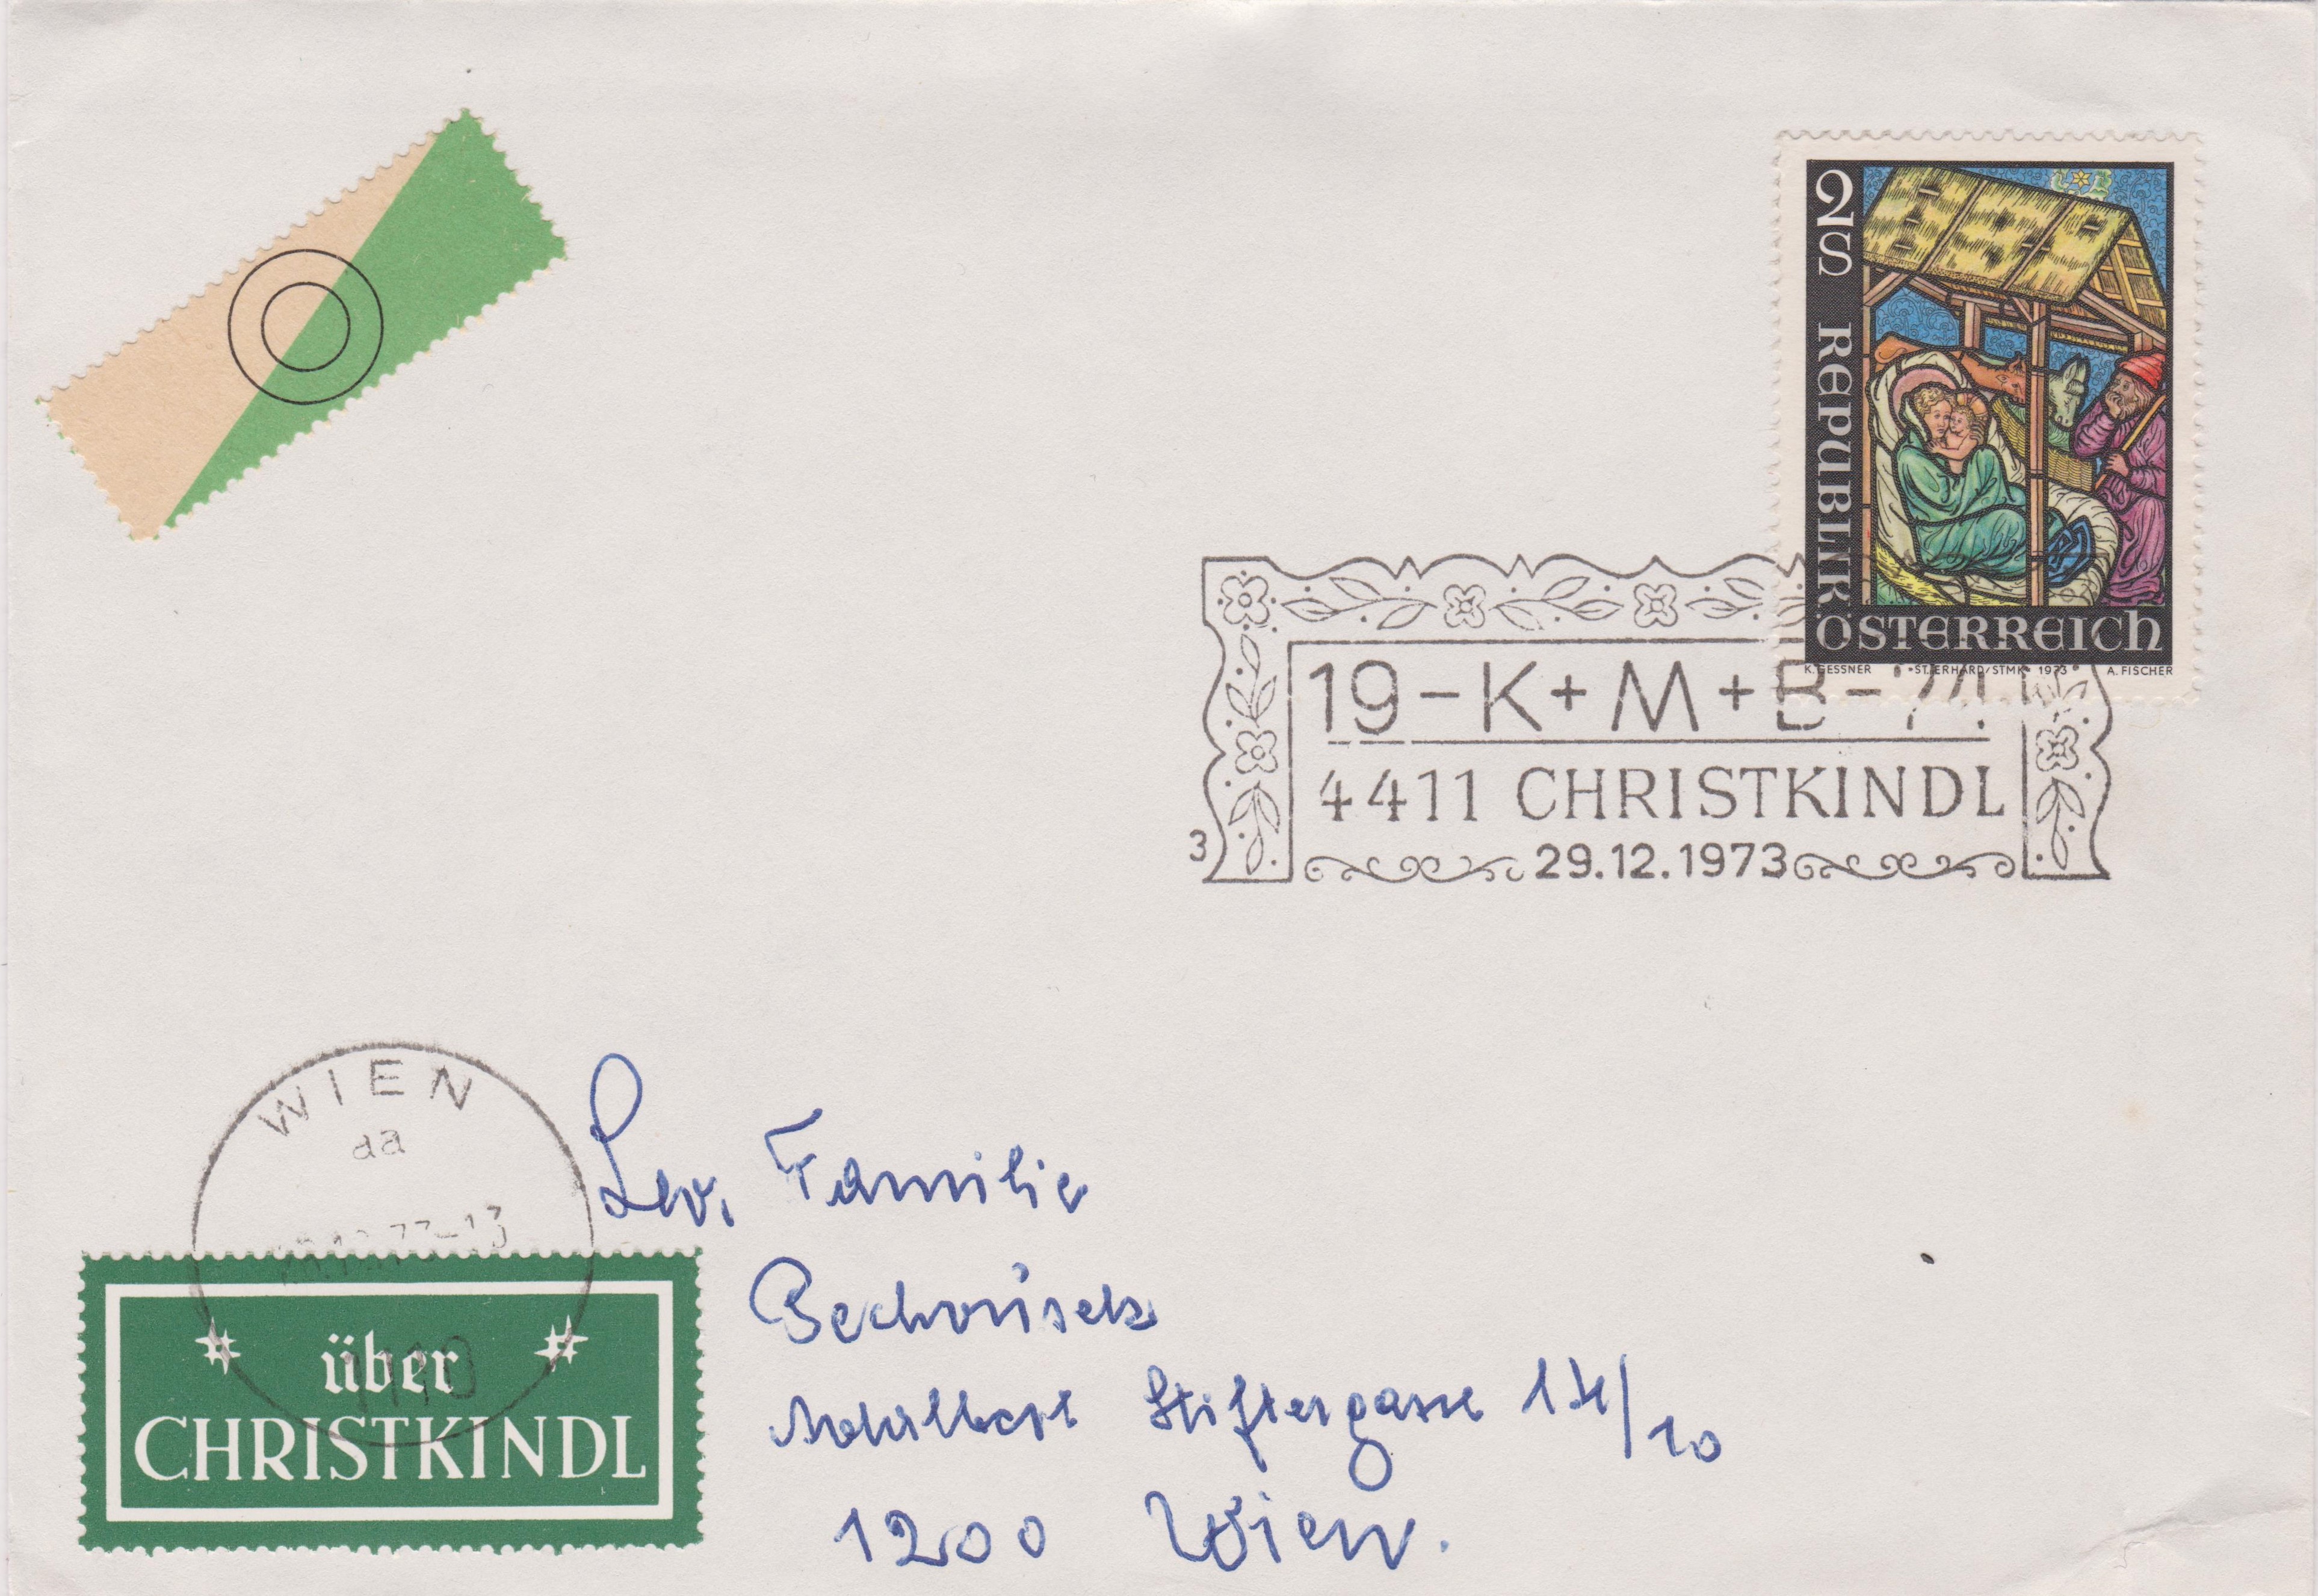 2
S
REPUBLIK
ÖSTERREICH
K. GESSNER •ST. ERHARD/STMK• 1973 A. FISCHER
19-K+M+B-74
4411 CHRISTKINDL
3
29.12.1973
WIEN
da
73-13
1110
über
CHRISTKINDL
Familie
Adalbert Stiftergasse 14/10
1200 Wien.